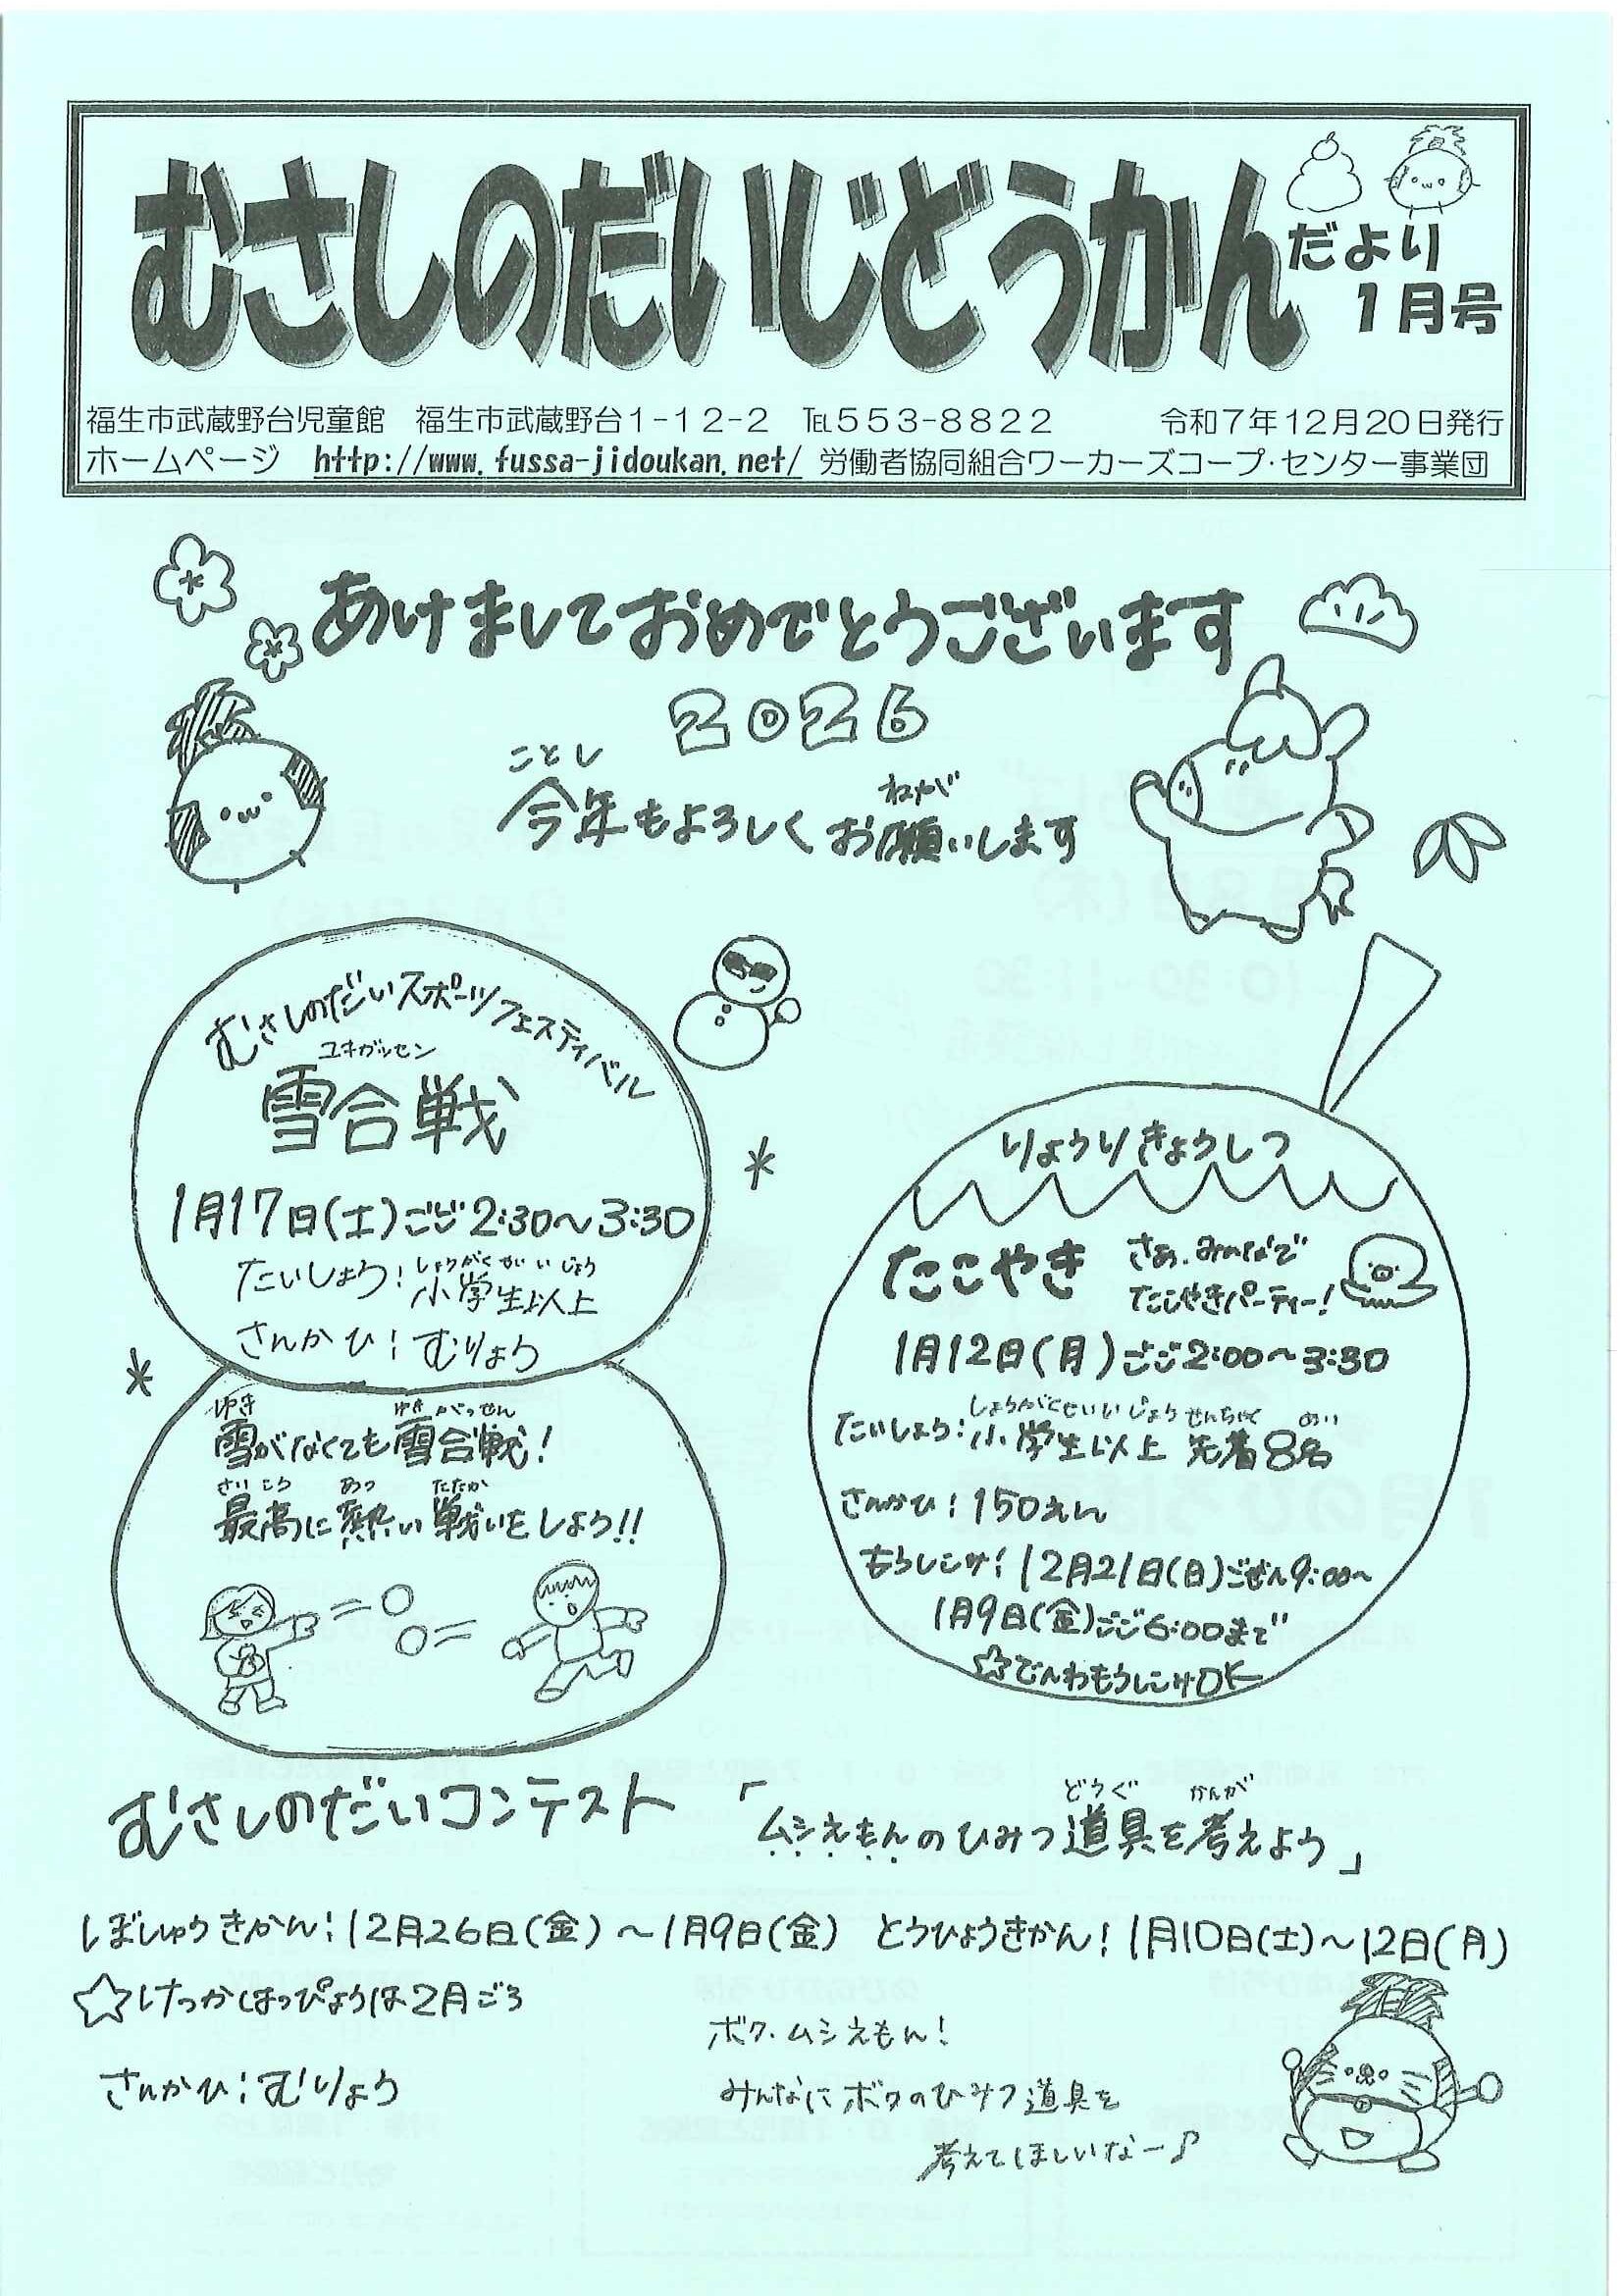 むさしのだいじどうかん
だより
1月号
福生市武蔵野台児童館　福生市武蔵野台1-12-2　℡553-8822　令和7年12月20日発行
ホームページ　http://www.fussa-jidoukan.net/ 労働者協同組合ワーカーズコープ・センター事業団
あけましておめでとうございます
2026
ことし
ねが
今年もよろしくお願いします
むさしのだいスポーツフェスティバル
ユキガッセン
雪合戦
1月17日(土)ごご2:30～3:30
しょうがくせいいじょう
たいしょう:小学生以上
さんかひ:むりょう
ゆき ゆきがっせん
雪がなくても雪合戦!
さいこう あつ たたか
最高に熱い戦いをしよう!!
りょうりきょうしつ
たこやき
さぁ、みんなで
たこやきパーティー!
1月12日(月)ごご2:00～3:30
しょうがくせいいじょう せんちゃく めい
たいしょう:小学生以上 先着8名
さんかひ:150えん
もうしこみ:12月21日(日)ごぜん9:00～
1月9日(金)ごご6:00まで
☆でんわもうしこみOK
むさしのだいコンテスト
どうぐ かんが
「ムシえもんのひみつ道具を考えよう」
しぼしゅうきかん:12月26日(金)～1月9日(金) とうひょうきかん:1月10日(土)～12日(月)
☆けっかはっぴょうは2月ごろ
さんかひ:むりょう
ボク、ムシえもん!
みんなにボクのひみつ道具を
考えてほしいなー♪